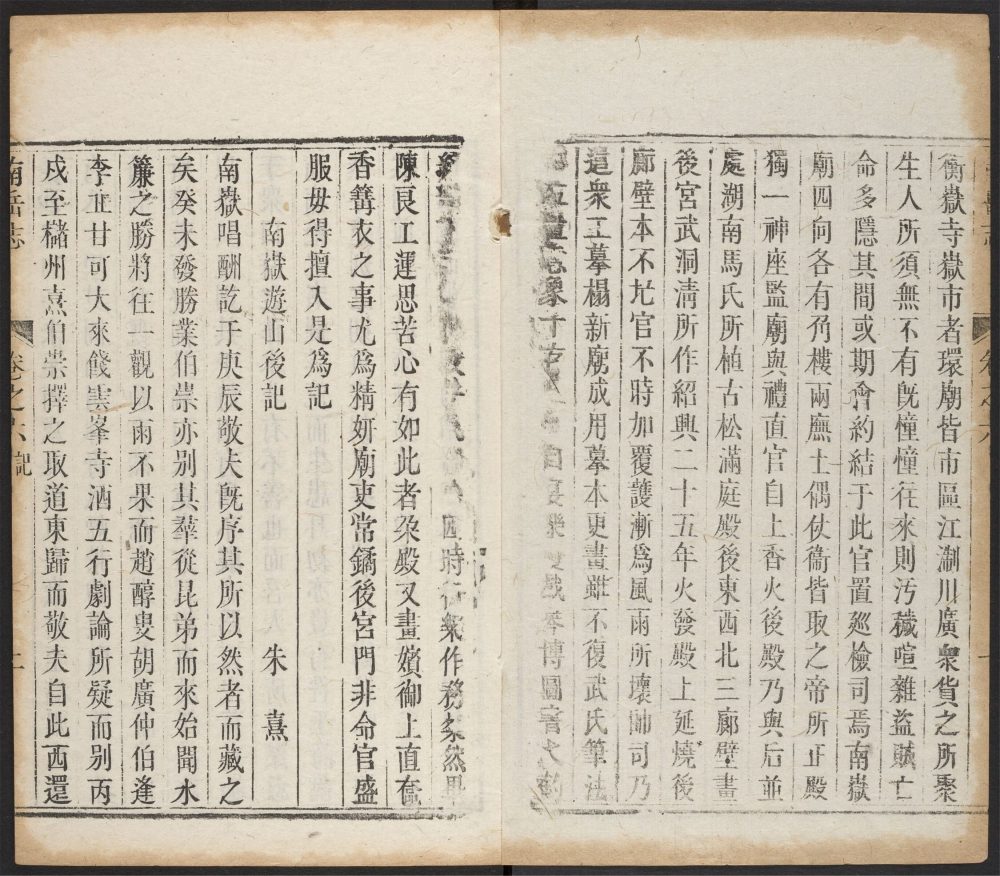 衡嶽寺嶽市者環廟皆市區江湖川廣衆貨之所聚
生人所須無不有既憧憧往來則汚穢喧雜盗賊亡
命多隱其間或期會約結于此官置廵檢司焉南嶽
廟四向各有角樓兩廡土偶仗衞皆取之帝所正殿
獨一神座監廟與禮直官自上香火後殿乃與后並
處湖南馬氏所植古松滿庭殿後東西北三廊壁畫
後宮武洞淸所作紹興二十五年火發殿上延燒後
廊壁本不圠官不時加覆護漸爲風雨所壞帥司乃
遣衆工摹榻新廟成用摹本更畫雖不復武氏筆法
位置意象十古
四時行樂作務粲然畢
陳良工運思苦心有如此者梁殿又畫嬪御上直奩
香篝衣之事尤爲精妍廟吏常鐍後宮門非命官盛
服毋得擅入是爲記
南嶽遊山後記
朱熹
南嶽唱酬訖于庚辰敬夫旣序其所以然者而藏之
矣癸未發勝業伯崇亦别其羣從昆弟而來始聞水
簾之勝將往一觀以雨不果而趙醇叟胡廣仲伯逢
李立甘可大來餞雲峯寺酒五行劇論所疑而别丙
戍至櫧州熹伯崇擇之取道東歸而敬夫自此西還
南岳志
卷之六
記